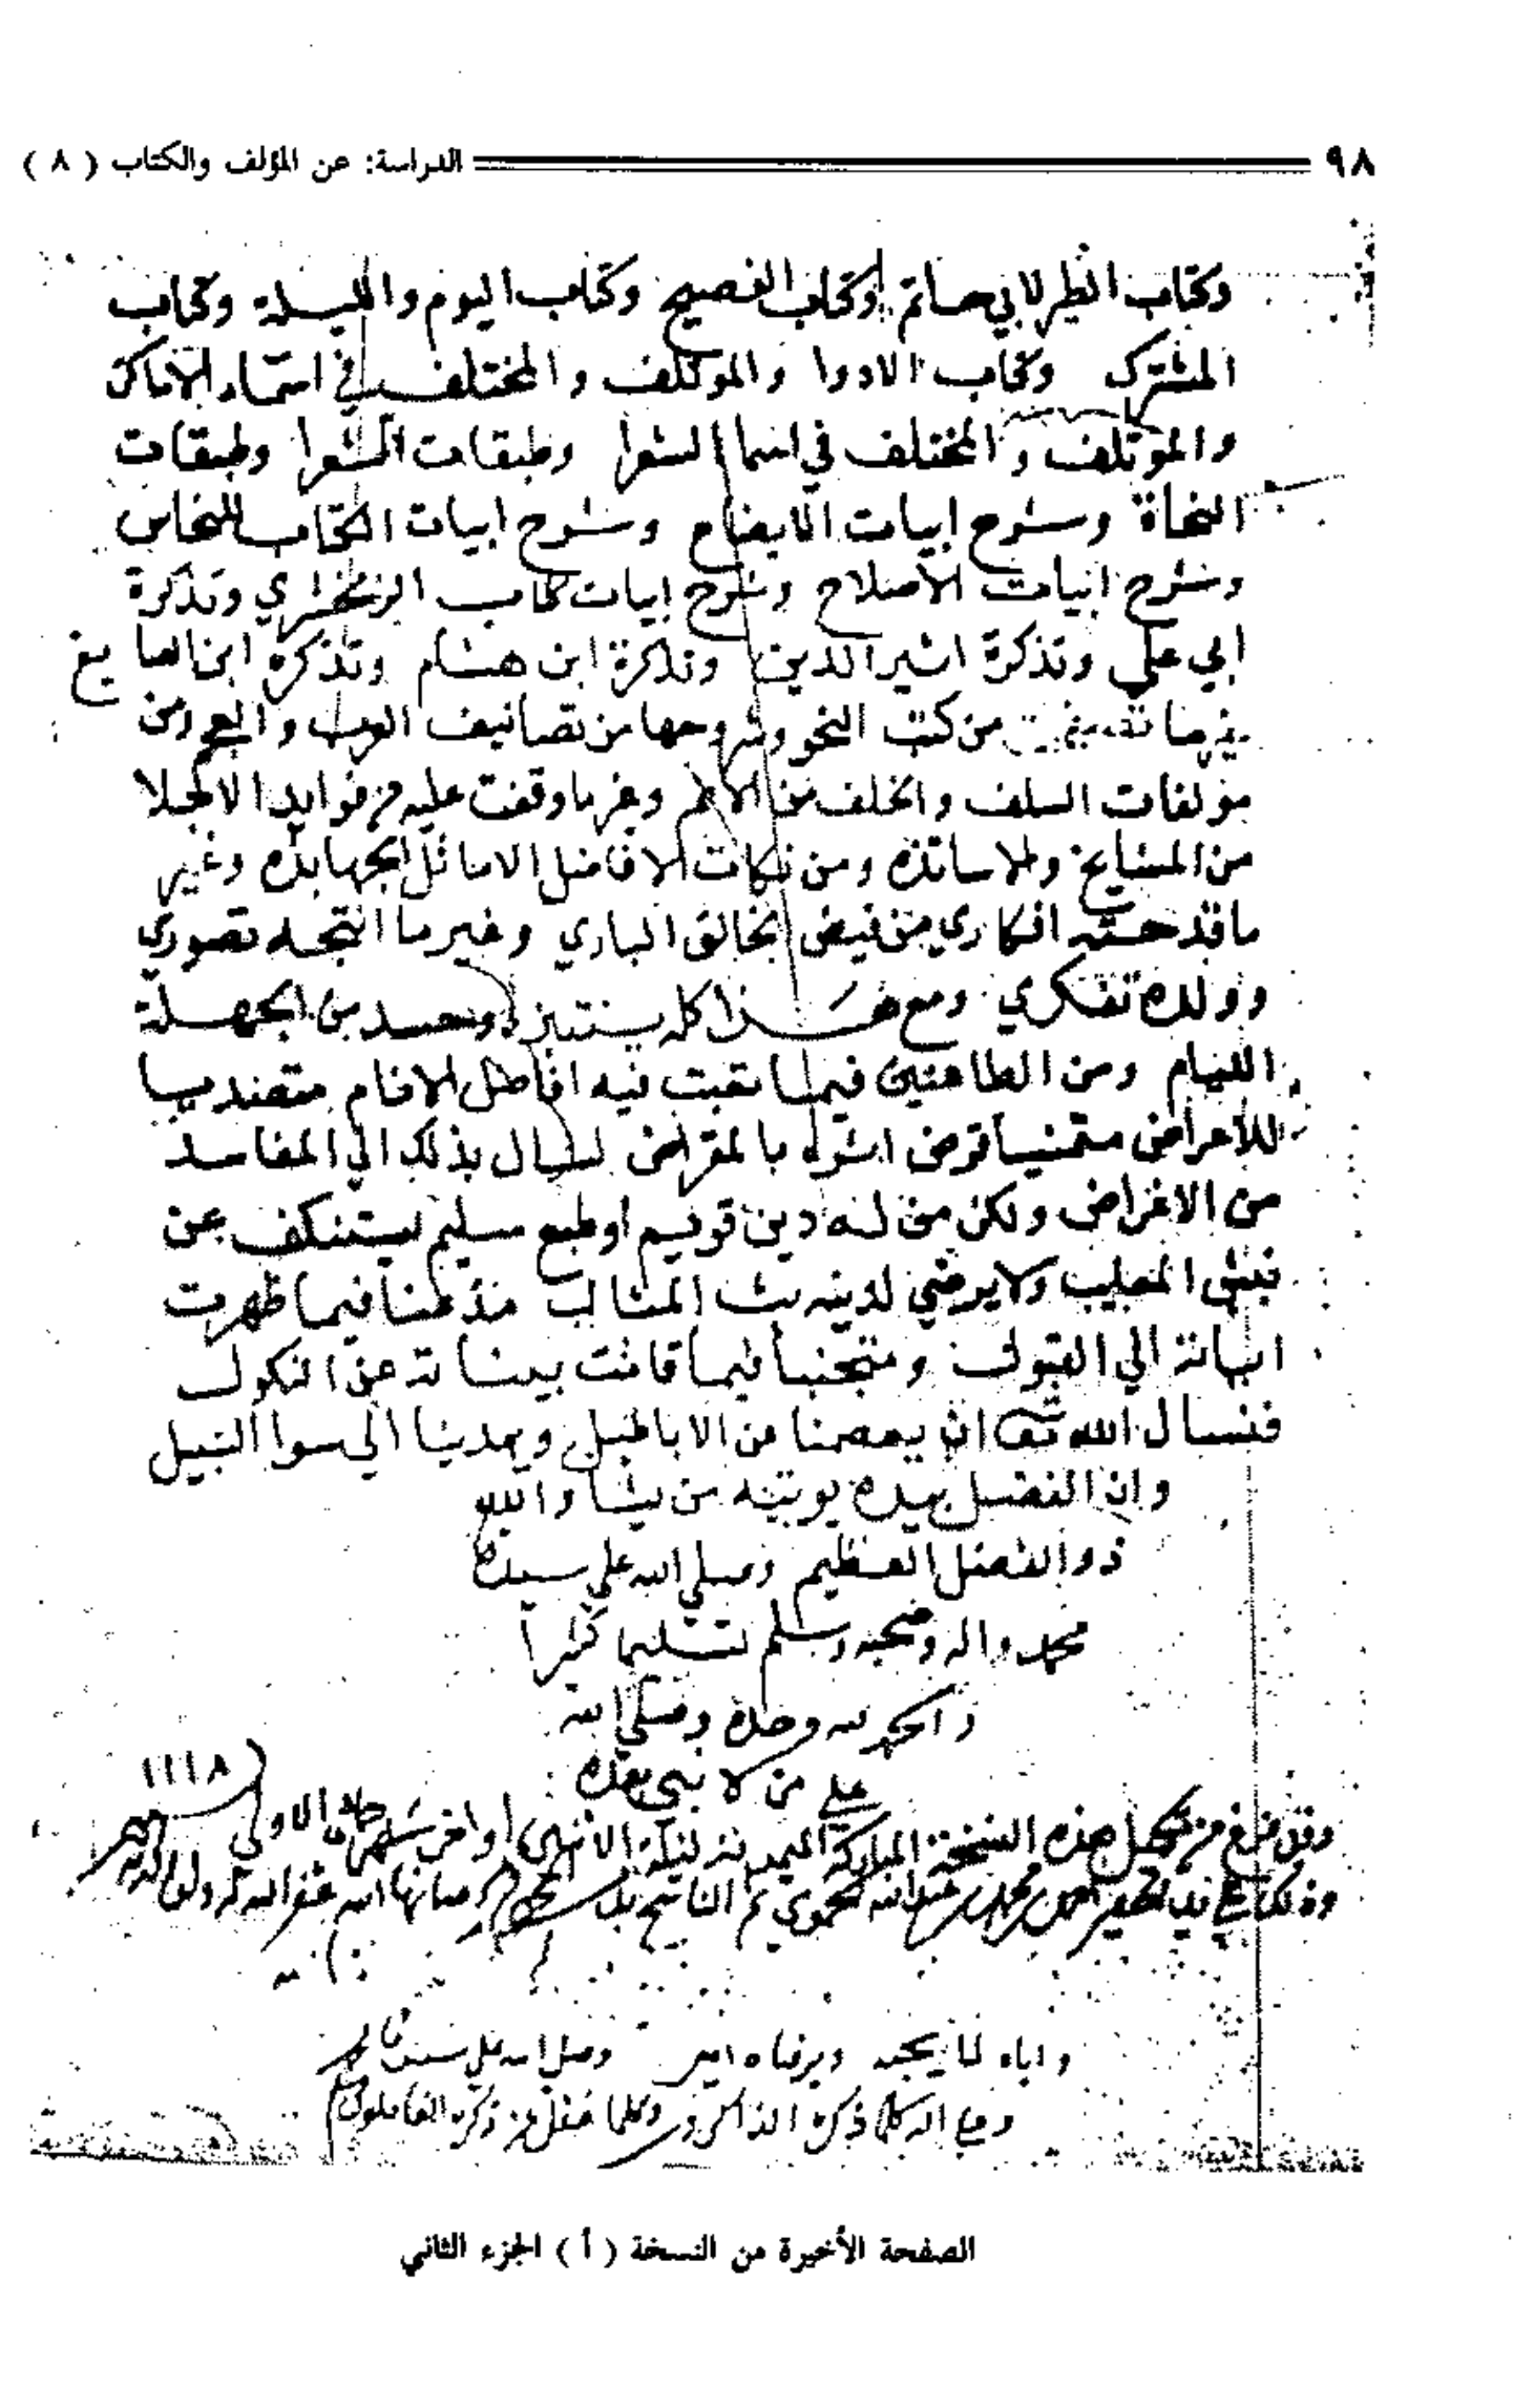 ٩٨ الدراسة: عن المؤلف والكتاب ( ٨ )
وكتاب الطير لابي حاتم وكتاب الفصيح وكتاب اليوم والليلة وكتاب
المشترك وكتاب الادوا والموتلف والمختلف في اسماء الاماكن
والموتلف والمختلف في اسما الشعرا وطبقات الشعرا وطبقات
النحاة وشرح ابيات الايضاح وشرح ابيات الكتاب للنحاس
وشرح ابيات الاصلاح وشرح ابيات كتاب الزمخشري وتذكرة
ابي علي وتذكرة اثير الدين وتذكرة ابن هشام وتذكرة ابن الصايغ
من كتب النحو وشروحها من تصانيف العرب والعجم ومن
مولفات السلف والخلف من وغير ما وقفت عليه من فوايد الاجلا
من المشايخ والاساتذه ومن نكات الافاضل الاماثل الجهابذه وغير
ما قدحته افكاري من فيض الخالق الباري وغير ما انتجه تصوري
وولده تفكري ومع هذا كله من الجهلة
الليام ومن الطاعنين فيما تعبت فيه افاضل الانام متصديا
للاعراض متمنيا قرض بالمقراض بذلك الي المفاسد
من الاغراض ولكن من له دين قويم او طبع سليم يستنكف عن
ولا يرضي لدينه بث المثالب مذعنا فيما ظهرت
الي القبول ومتجنبا فيما قامت بيناته عن النكول
فنسال الله تعالى ان يعصمنا من الاباطيل ويهدينا الي سوا السبيل
وان الفضل بيده يوتيه من يشا والله
ذو الفضل العظيم وصلي الله علي سيدنا
محمد واله وصحبه وسلم تسليما كثيرا
والحمد لله وحده وصلي الله
علي من لا نبي بعده
وقد فرغ من هذه النسخة المباركة اواخر شهر جمادى الاولى ١١١٨
الحموي ثم غفر الله له ولوالديه
واياه لما يحبه ويرضاه امين وصلى الله على سيدنا محمد
وعلى اله كلما ذكره الذاكرون وكلما غفل عن ذكره الغافلون
الصفحة الأخيرة من النسخة ( أ ) الجزء الثاني